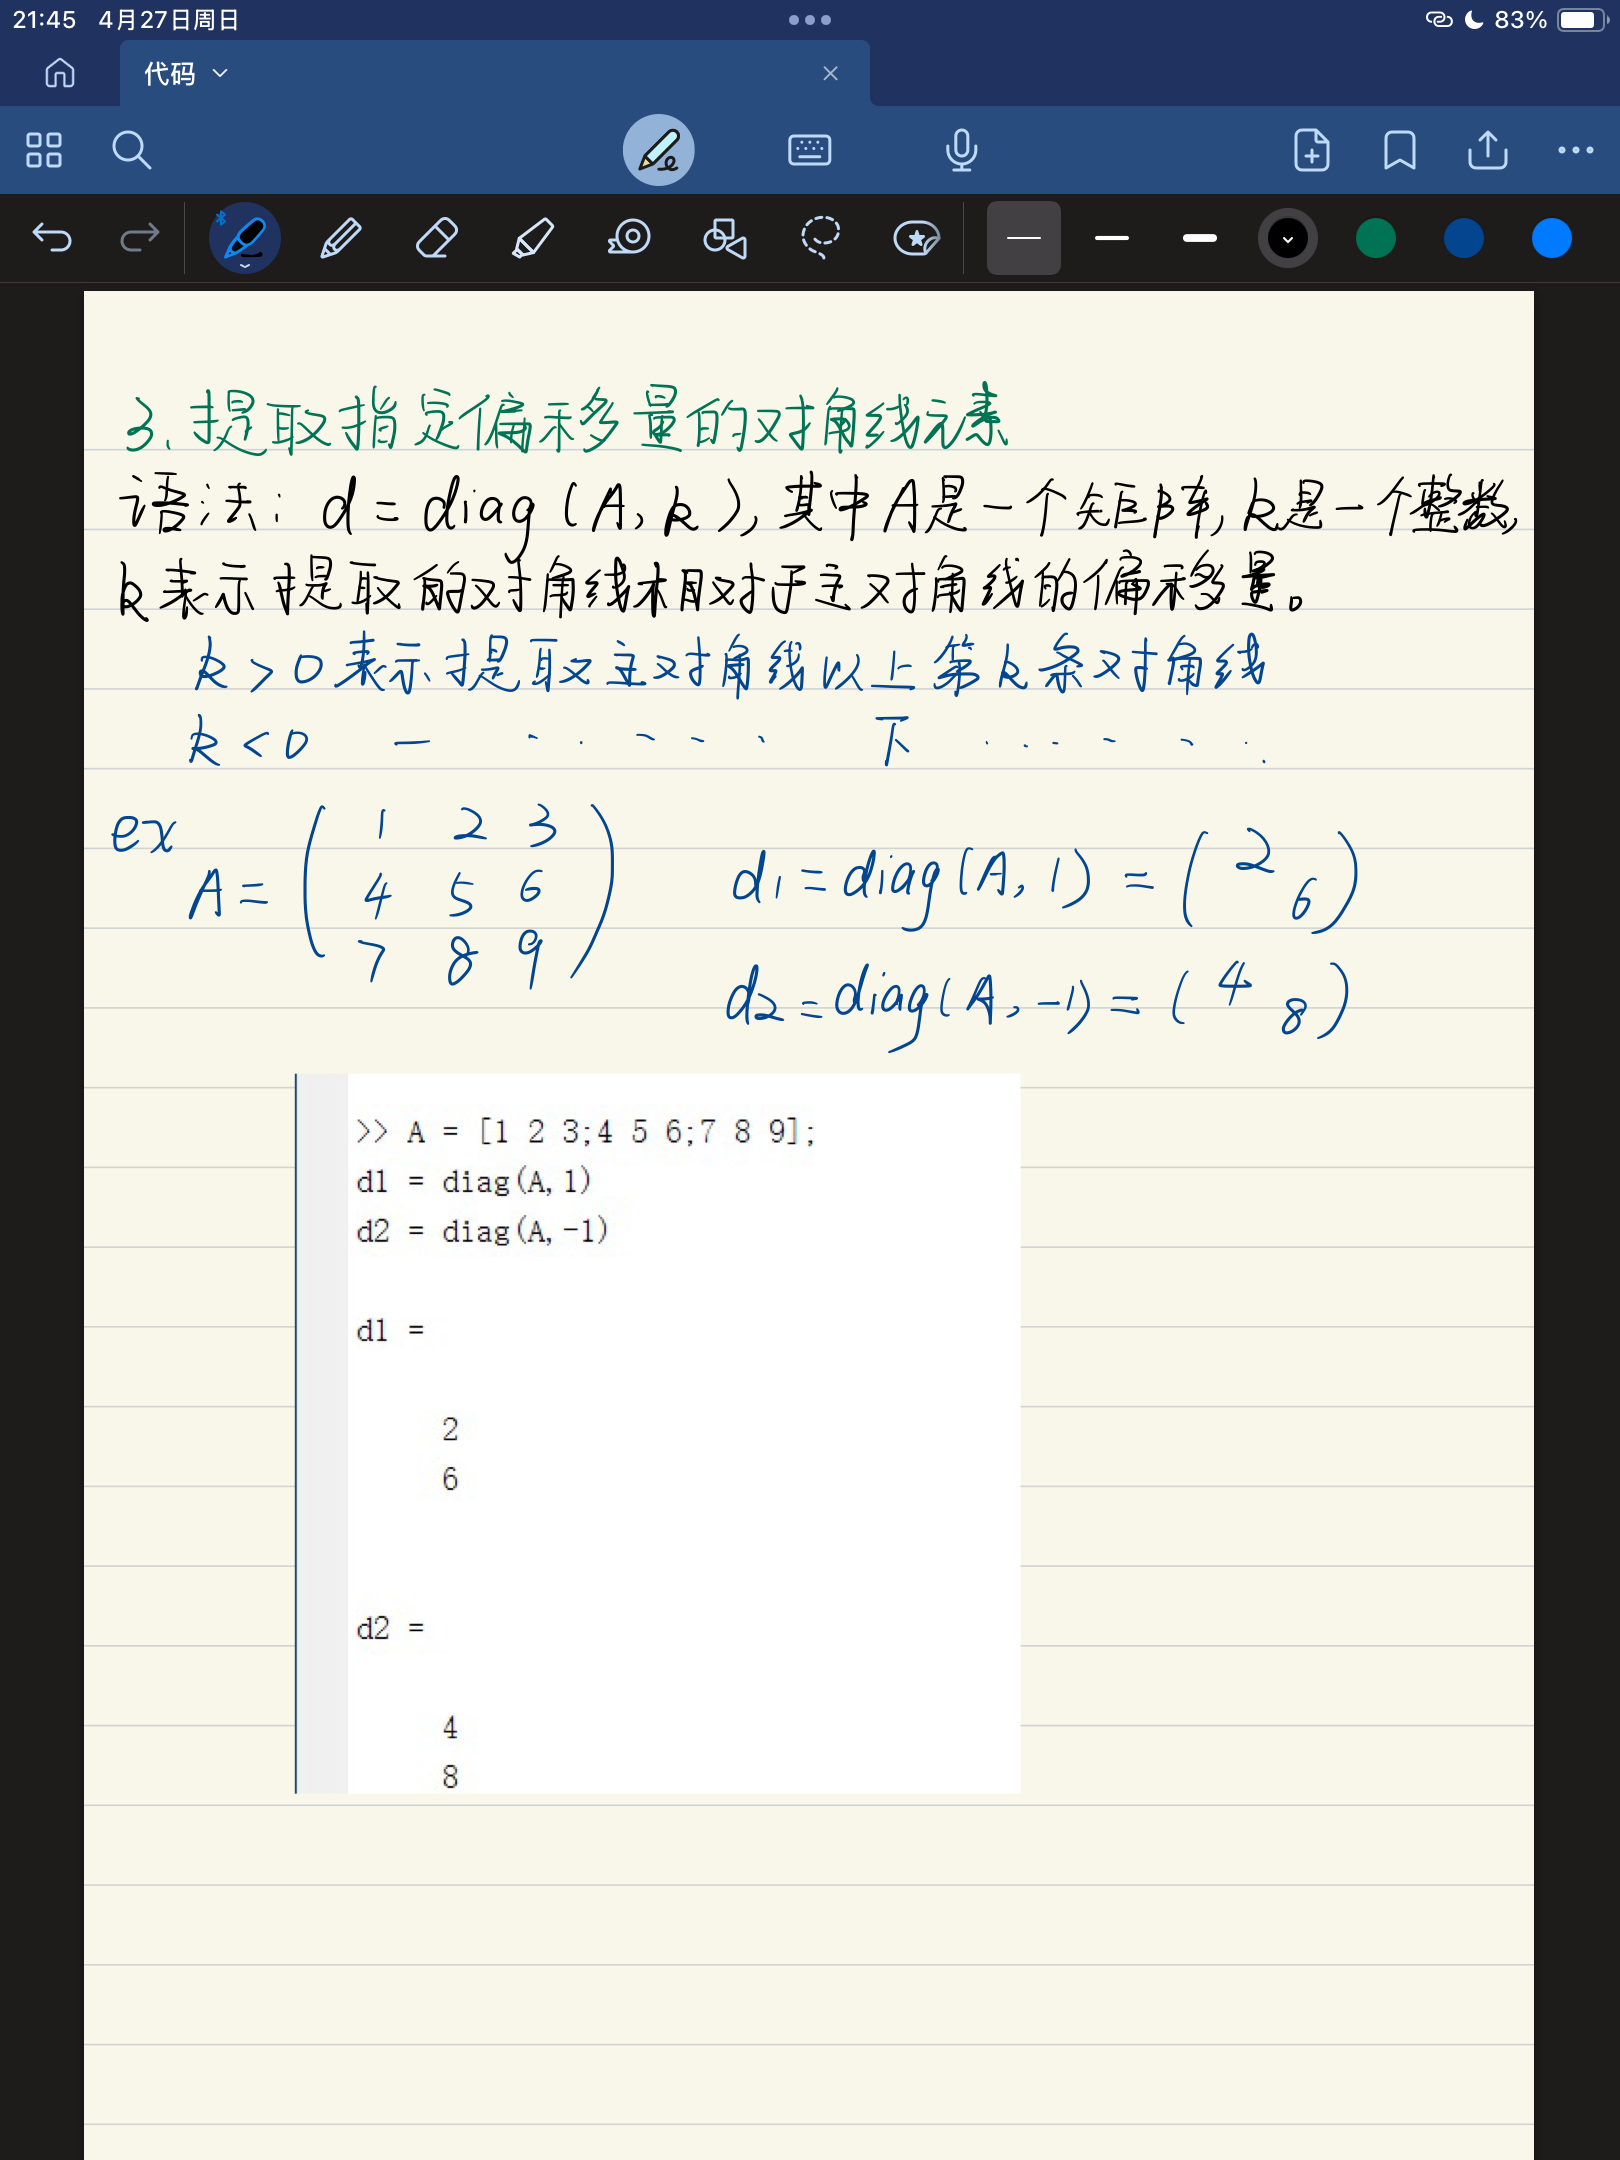 21:45 4月27日周日
83%
代码
3.提取指定偏移量的对角线元素
语法: d = diag (A, k), 其中A是一个矩阵, k是一个整数,
k表示提取的对角线相对于主对角线的偏移量。
k > 0 表示提取主对角线以上第k条对角线
k < 0 — · · · · · 下 · · · · · ·
ex
A = ( 1 2 3
4 5 6
7 8 9 )
d1 = diag(A, 1) = ( 2
6 )
d2 = diag(A, -1) = ( 4
8 )
>> A = [1 2 3;4 5 6;7 8 9];
d1 = diag(A,1)
d2 = diag(A,-1)
d1 =
2
6
d2 =
4
8